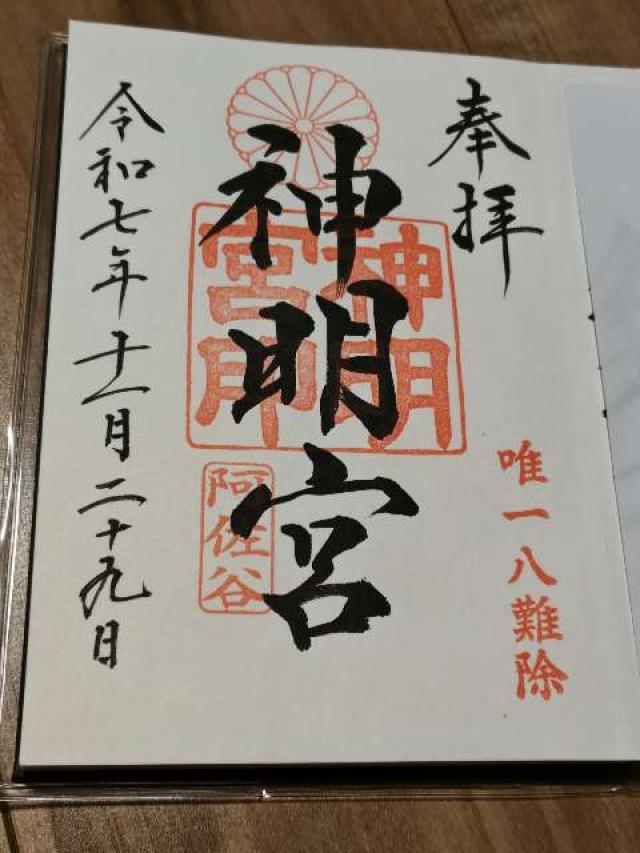 奉拝
唯一八難除
神明宮
神明
宮印
阿佐谷
令和七年十一月二十九日